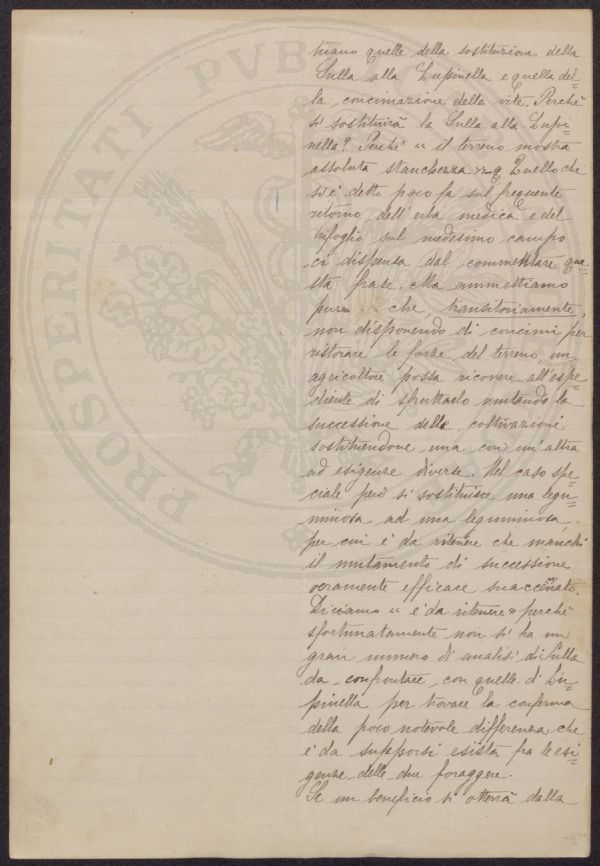 PROSPERITATI PVB
triamo quelle della sostituzione della
Sulla alla Lupinella e quella del=
la concimazione della vite. Perchè
si sostituirà la Sulla alla Lupi=
nella? Perchè " il terreno mostra
assoluta stanchezza " Quello che
si è detto poco fa sul frequente
ritorno dell'erba medica e del
trifoglio sul medesimo campo
ci dispensa dal commentare que=
sta frase. Ma ammettiamo
pure che, transitoriamente,
non disponendo di concimi per
ristorare le forze del terreno, un
agricoltore possa ricorrere all'espe=
diente di sfruttarlo mutando la
successione delle coltivazioni
sostituendone una con un'altra
ad esigenze diverse. Nel caso spe=
ciale però si sostituisce una legu=
minosa ad una leguminosa,
per cui è da ritenere che manchi
il mutamento di successione
veramente efficace suaccennato.
Diciamo " è da ritenere " perchè
sfortunatamente non si ha un
gran numero di analisi di Sulla
da confrontare con quelle di Lu=
pinella per trovare la conferma
della poco notevole differenza che
è da supporsi esista fra le esi=
genze delle due foraggere.
Se un beneficio si otterrà dalla